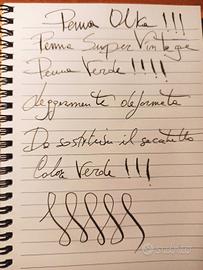 Penna OMAS !!!
Penna Super Vintage
Penna Verde !!!!
leggermente deformata
Da sostituire il sacchetto
Color Verde !!!